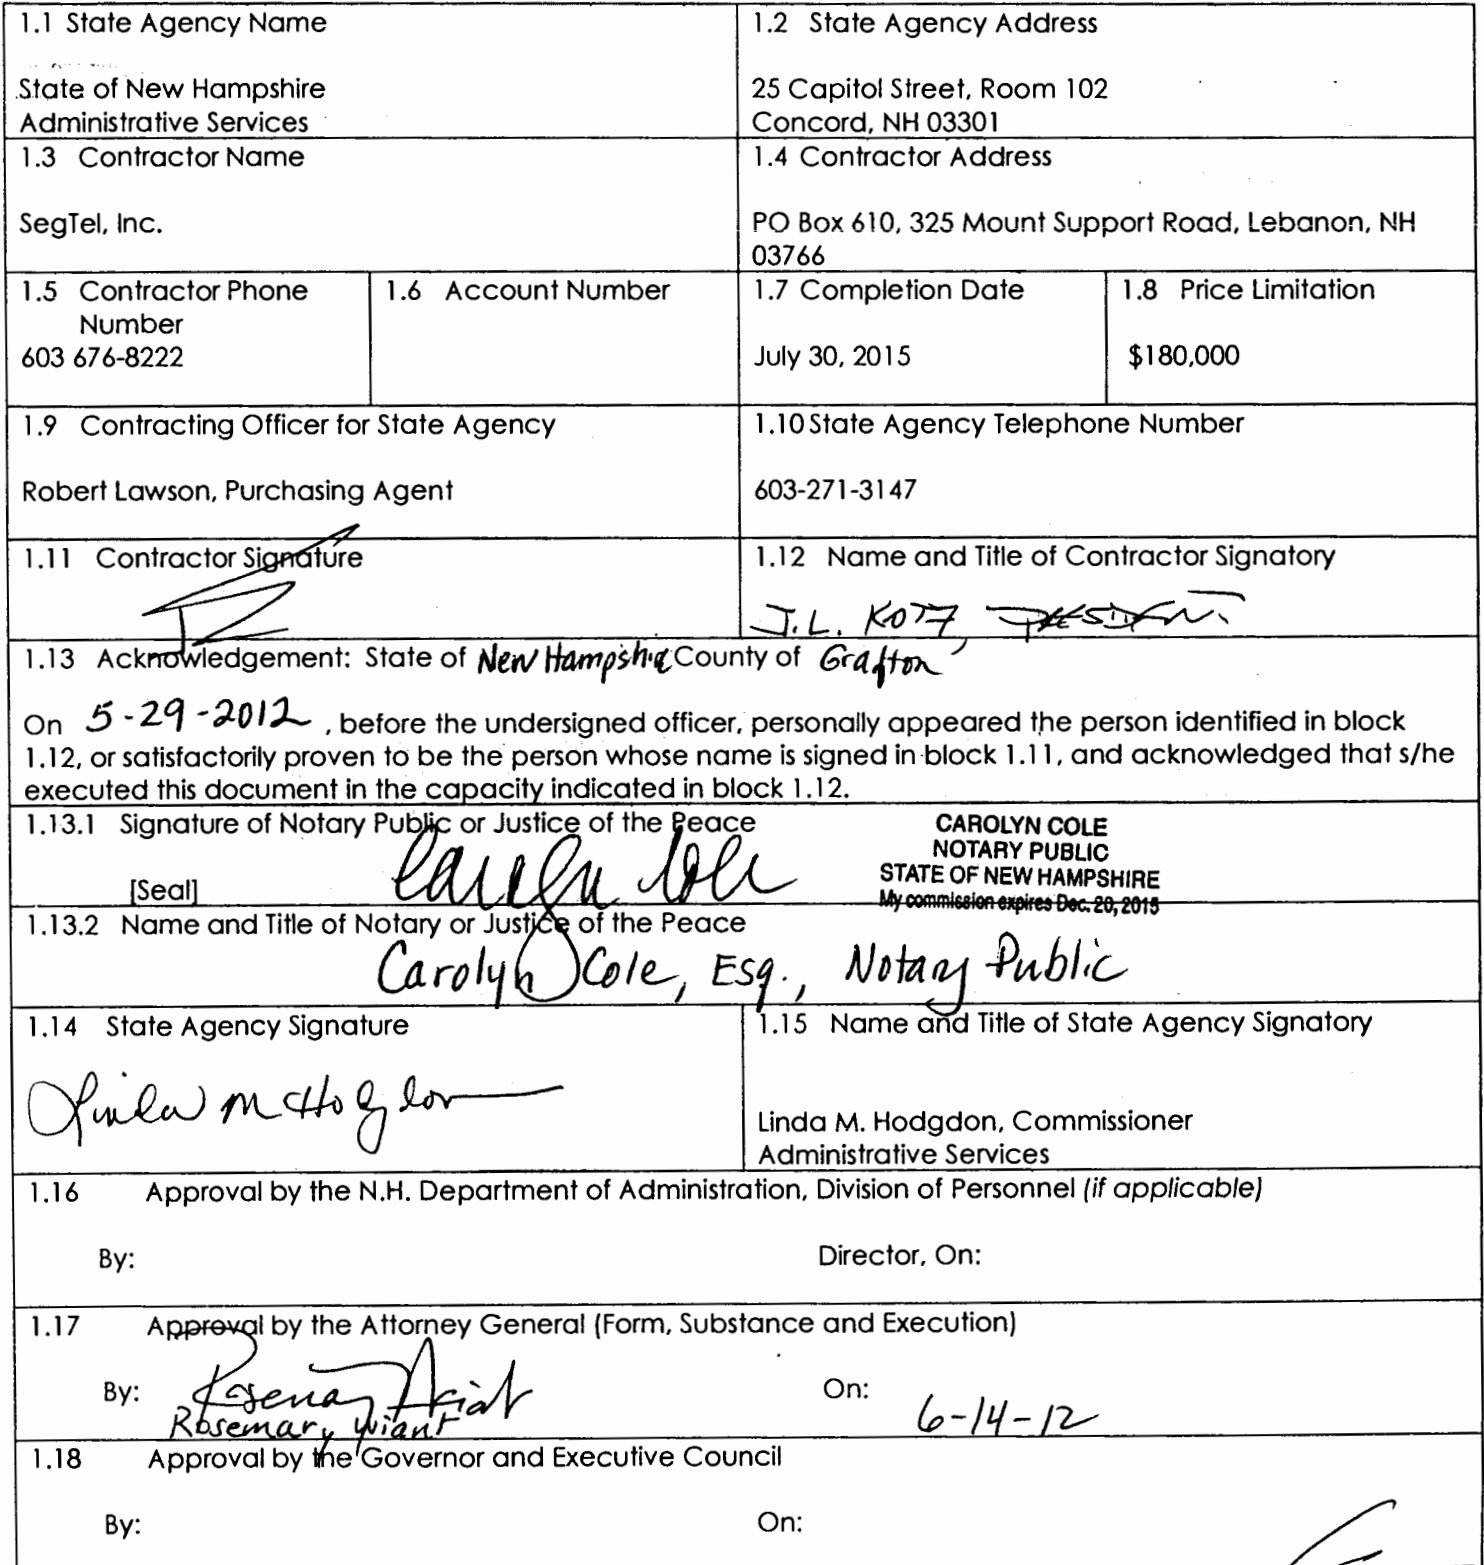 1.1 State Agency Name
State of New Hampshire
Administrative Services
1.2 State Agency Address
25 Capitol Street, Room 102
Concord, NH 03301
1.3 Contractor Name
SegTel, Inc.
1.4 Contractor Address
PO Box 610, 325 Mount Support Road, Lebanon, NH
03766
1.5 Contractor Phone
Number
603 676-8222
1.6 Account Number
1.7 Completion Date
July 30, 2015
1.8 Price Limitation
$180,000
1.9 Contracting Officer for State Agency
Robert Lawson, Purchasing Agent
1.10 State Agency Telephone Number
603-271-3147
1.11 Contractor Signature
1.12 Name and Title of Contractor Signatory
J.L. PRESIDENT
1.13 Acknowledgement: State of New Hampshire County of Grafton
On 5-29-2012, before the undersigned officer, personally appeared the person identified in block
1.12, or satisfactorily proven to be the person whose name is signed in block 1.11, and acknowledged that s/he
executed this document in the capacity indicated in block 1.12.
1.13.1 Signature of Notary Public or Justice of the Peace
Carolyn Cole
[Seal]
CAROLYN COLE
NOTARY PUBLIC
STATE OF NEW HAMPSHIRE
My commission expires Dec. 20, 2015
1.13.2 Name and Title of Notary or Justice of the Peace
Carolyn Cole, Esq., Notary Public
1.14 State Agency Signature
Linda M Hodgdon
1.15 Name and Title of State Agency Signatory
Linda M. Hodgdon, Commissioner
Administrative Services
1.16 Approval by the N.H. Department of Administration, Division of Personnel (if applicable)
By: Director, On:
1.17 Approval by the Attorney General (Form, Substance and Execution)
By: Rosemary Wiant On: 6-14-12
Rosemary Wiant
1.18 Approval by the Governor and Executive Council
By: On: